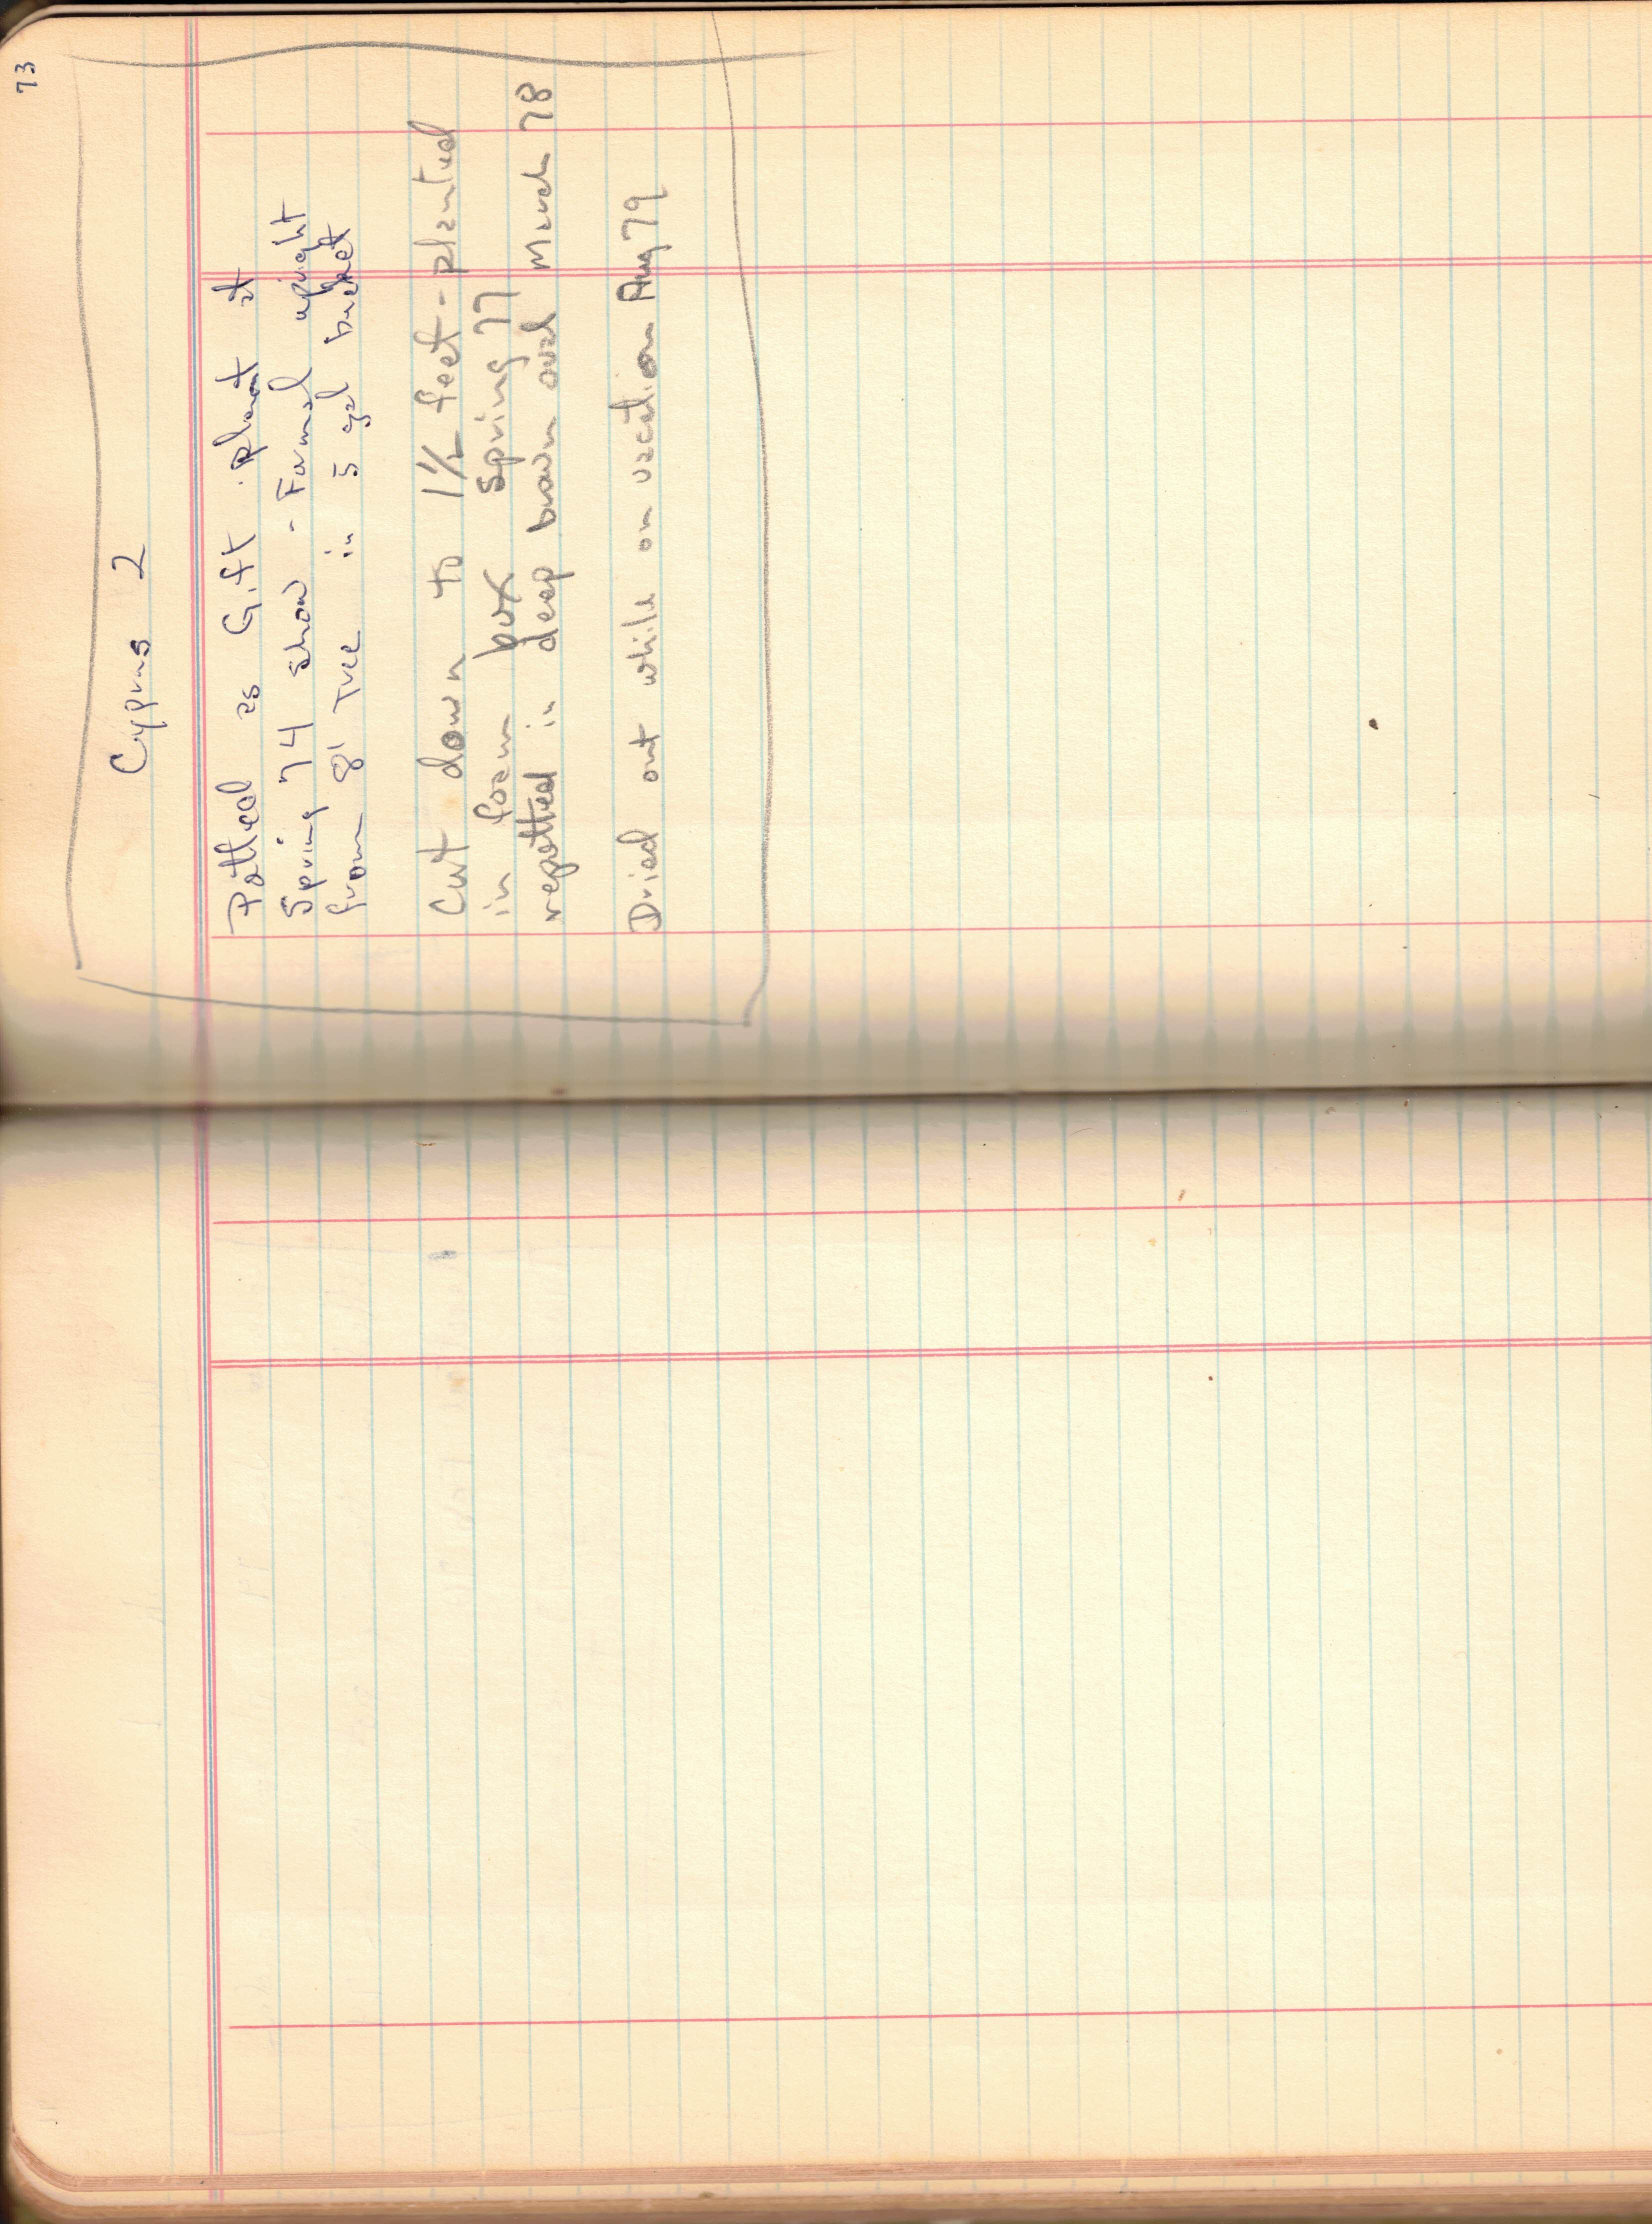 73
Cyprus 2
Potted as Gift plant at
Spring 74 show - Formal upright
from 8' Tree in 5 gal bucket
Cut down to 1½ feet - planted
in foam box Spring 77
repotted in deep brown oval March 78
Dried out while on vacation Aug 79